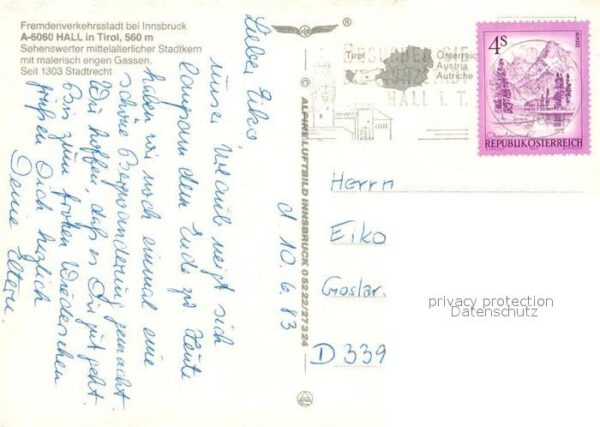 Fremdenverkehrsstadt bei Innsbruck
A-6060 HALL in Tirol, 560 m
Sehenswerter mittelalterlicher Stadtkern
mit malerisch engen Gassen.
Seit 1303 Stadtrecht
Lieber Eiko
unser Urlaub neigt sich
langsam dem Ende zu. Heute
haben wir noch einmal eine
schöne Bergwanderung gemacht.
Wir hoffen, daß es Dir gut geht.
Bis zum frohen Wiedersehen
grüßen Dich herzlich
Deine Eltern.
d. 10.6.83
© ALPINE LUFTBILD INNSBRUCK 05222/27324
®
Tirol
Österreich
Austria
Autriche
HALL i. T.
4S
ALMSEE
REPUBLIK ÖSTERREICH
Herrn
Eiko
Goslar.
D 339
privacy protection
Datenschutz